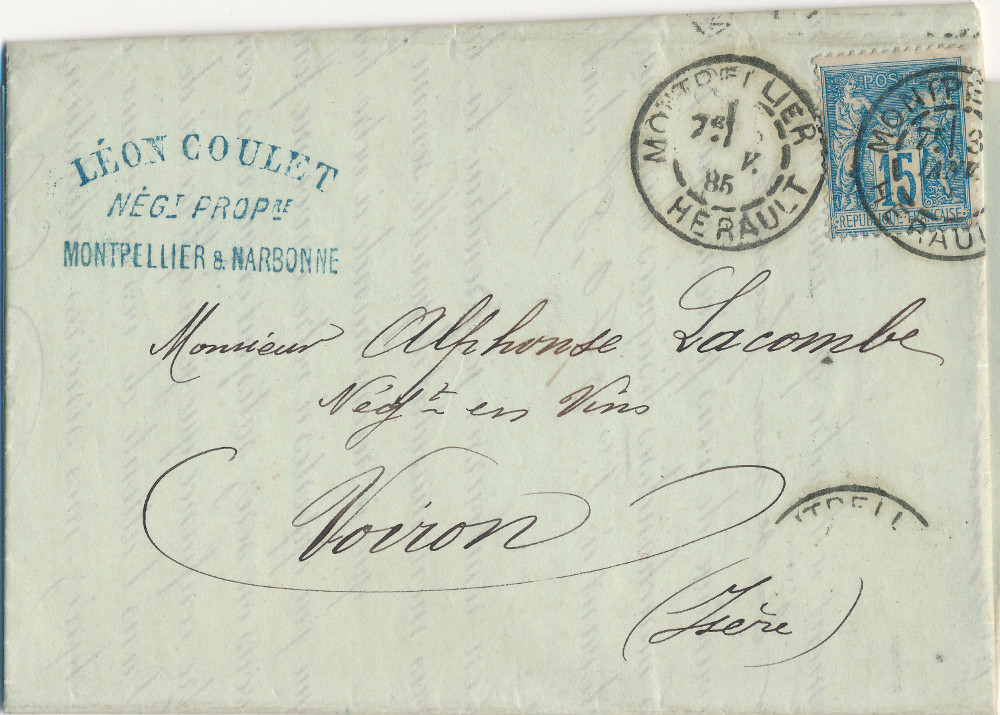 LÉON COULET
NÉGT PROPRE
MONTPELLIER & NARBONNE
MONTPELLIER
7E/
V.
85
HERAULT
POSTE
15
REPUBLIQUE FRANÇAISE
MONTP
7E/
HERAUL
Monsieur Alphonse Lacombe
Négt en Vins
Voiron
(Isère)
NTPELL